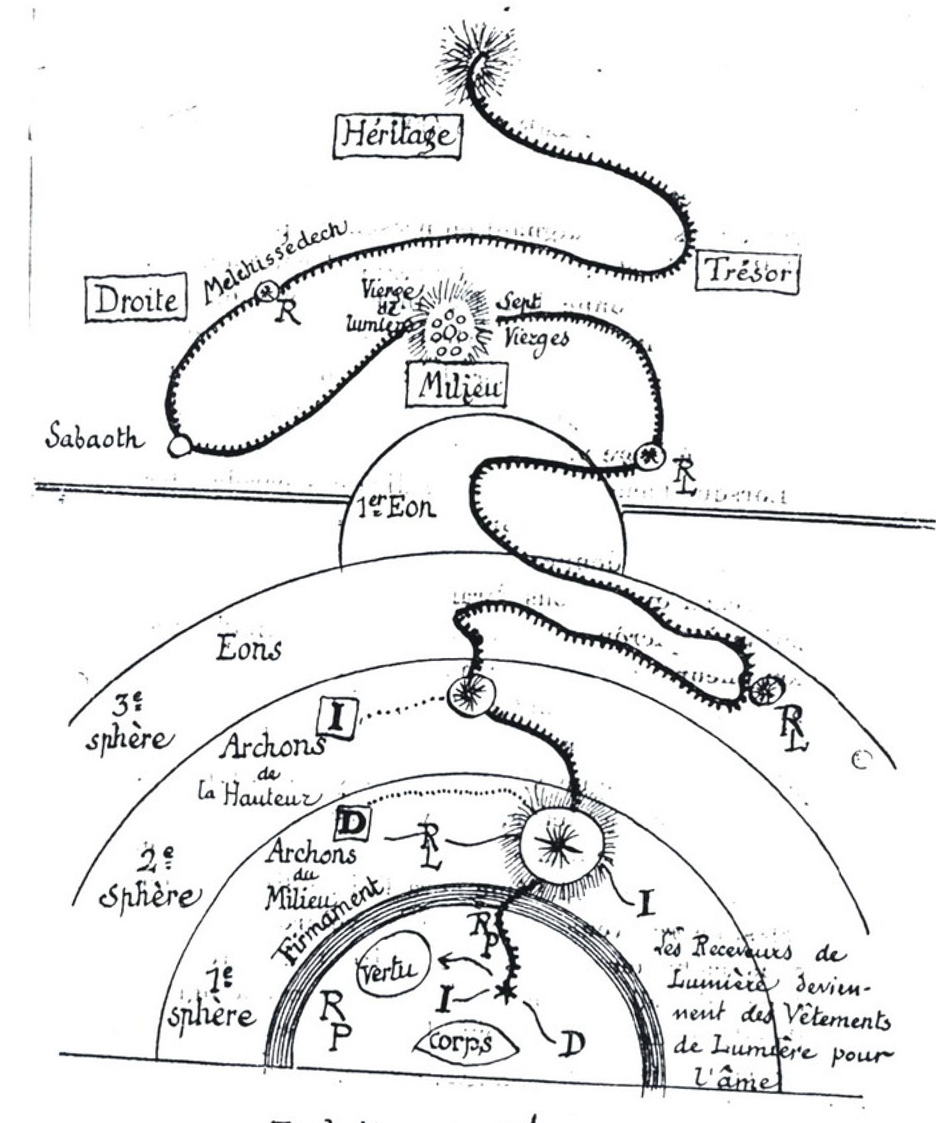 Héritage
Melchissédech
Trésor
Droite
R
Vierge
de
lumière
Sept
Vierges
Milieu
Sabaoth
RL
1er Eon
Eons
3e
sphère
I
RL
Archons
de
la Hauteur
D
RL
Archons
du
Milieu
2e
sphère
I
Firmament
RP
vertu
Les Receveurs de
Lumière devien-
nent des Vêtements
de Lumière pour
l'âme
1e
sphère
R
P
I
D
corps